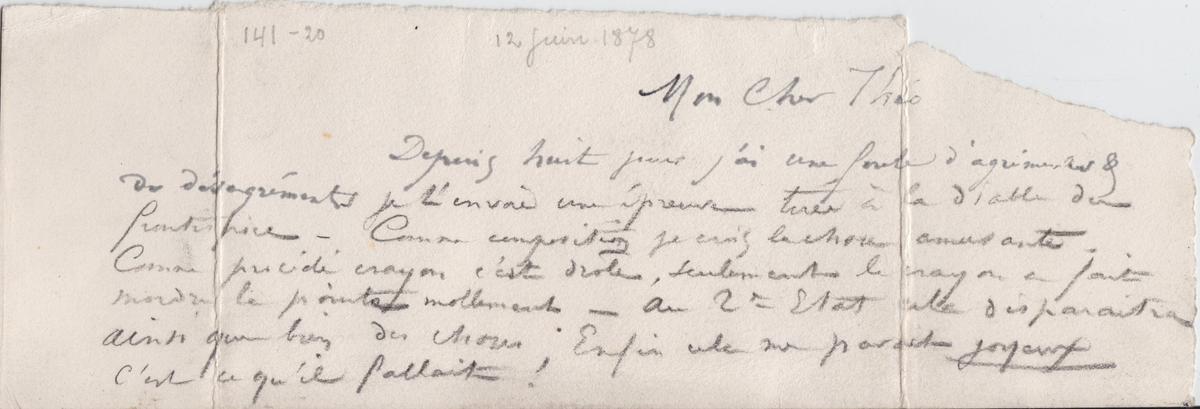 141-20 12 Juin 1878
Mon Cher Théo
Depuis huit jours j'ai une foule d'agréments &
de désagréments je t'envoie une épreuve tirée à la diable du
frontispice – Comme composition je crois la chose amusante.
Comme procédé crayon c'est drôle, seulement le crayon a fait
mordre le pointe mollement – au 2me Etat cela disparaitra
ainsi que bien des choses ! Enfin cela me parait joyeux
c'est ce qu'il fallait !